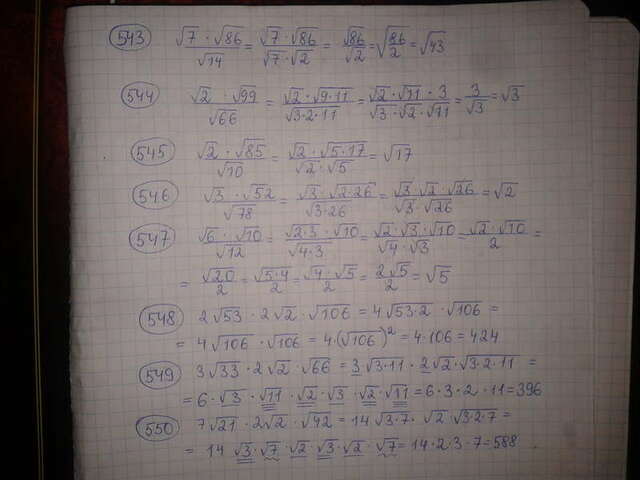 543 √7 · √86 / √14 = √7 · √86 / √7 · √2 = √86 / √2 = √86/2 = √43
544 √2 · √99 / √66 = √2 · √9·11 / √3·2·11 = √2 · √11 · 3 / √3 · √2 · √11 = 3 / √3 = √3
545 √2 · √85 / √10 = √2 · √5·17 / √2 · √5 = √17
546 √3 · √52 / √78 = √3 · √2·26 / √3·26 = √3 · √2 · √26 / √3 · √26 = √2
547 √6 · √10 / √12 = √2·3 · √10 / √4·3 = √2 · √3 · √10 / √4 · √3 = √2 · √10 / 2 =
= √20 / 2 = √5·4 / 2 = √4 · √5 / 2 = 2√5 / 2 = √5
548 2√53 · 2√2 · √106 = 4√53·2 · √106 =
= 4√106 · √106 = 4·(√106)² = 4·106 = 424
549 3√33 · 2√2 · √66 = 3√3·11 · 2√2 · √3·2·11 =
= 6 · √3 · √11 · √2 · √3 · √2 · √11 = 6·3·2·11 = 396
550 7√21 · 2√2 · √42 = 14√3·7 · √2 · √3·2·7 =
= 14 √3 · √7 · √2 √3 · √2 · √7 = 14·2·3·7 = 588